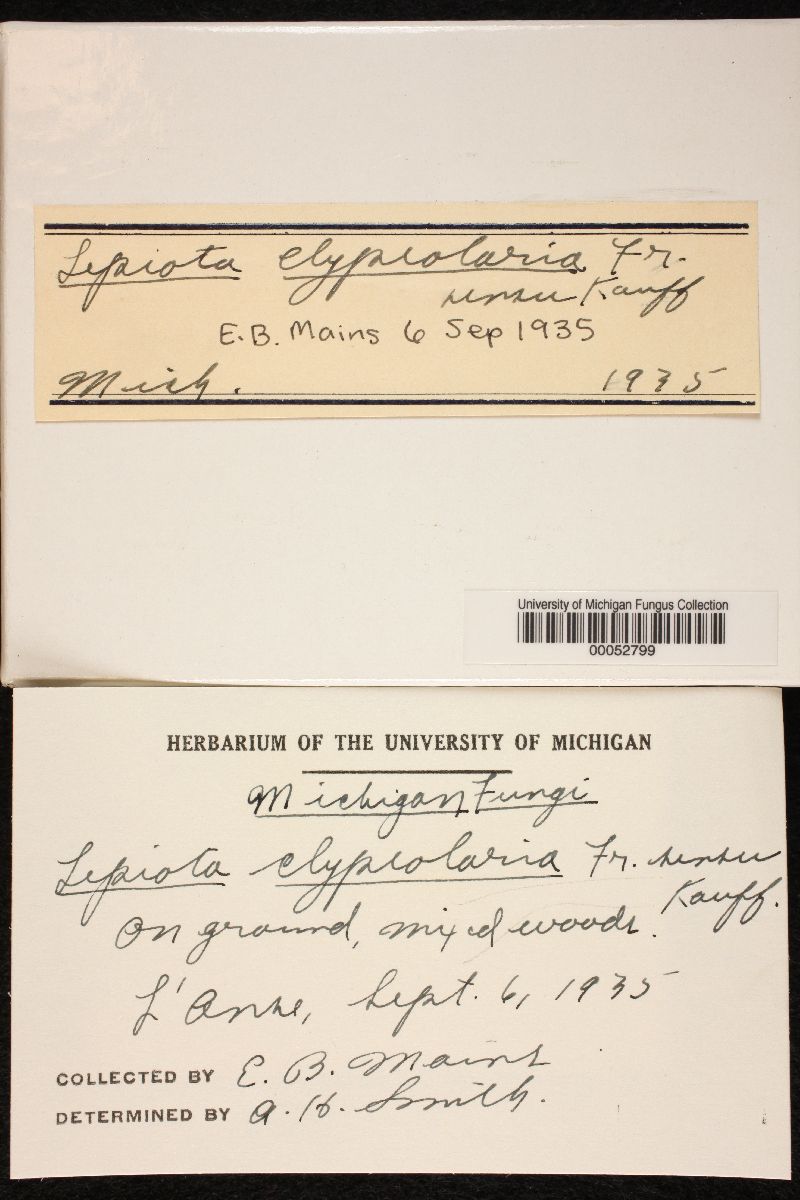 Lepiota clypeolaria Fr.
sensu Kauff
E.B. Mains 6 Sep 1935
Mich. 1935
University of Michigan Fungus Collection
00052799
HERBARIUM OF THE UNIVERSITY OF MICHIGAN
Michigan Fungi
Lepiota clypeolaria Fr. sensu
Kauff.
On ground, mixed woods.
L'Anse, Sept. 6, 1935
COLLECTED BY E. B. Mains
DETERMINED BY A. H. Smith.